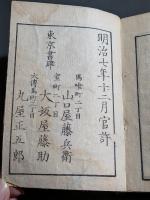 明治七年十二月官許
東京書肆
馬喰町二丁目
山口屋藤兵衛
室町二丁目
大坂屋藤助
大傳馬町二丁目
丸屋正五郎